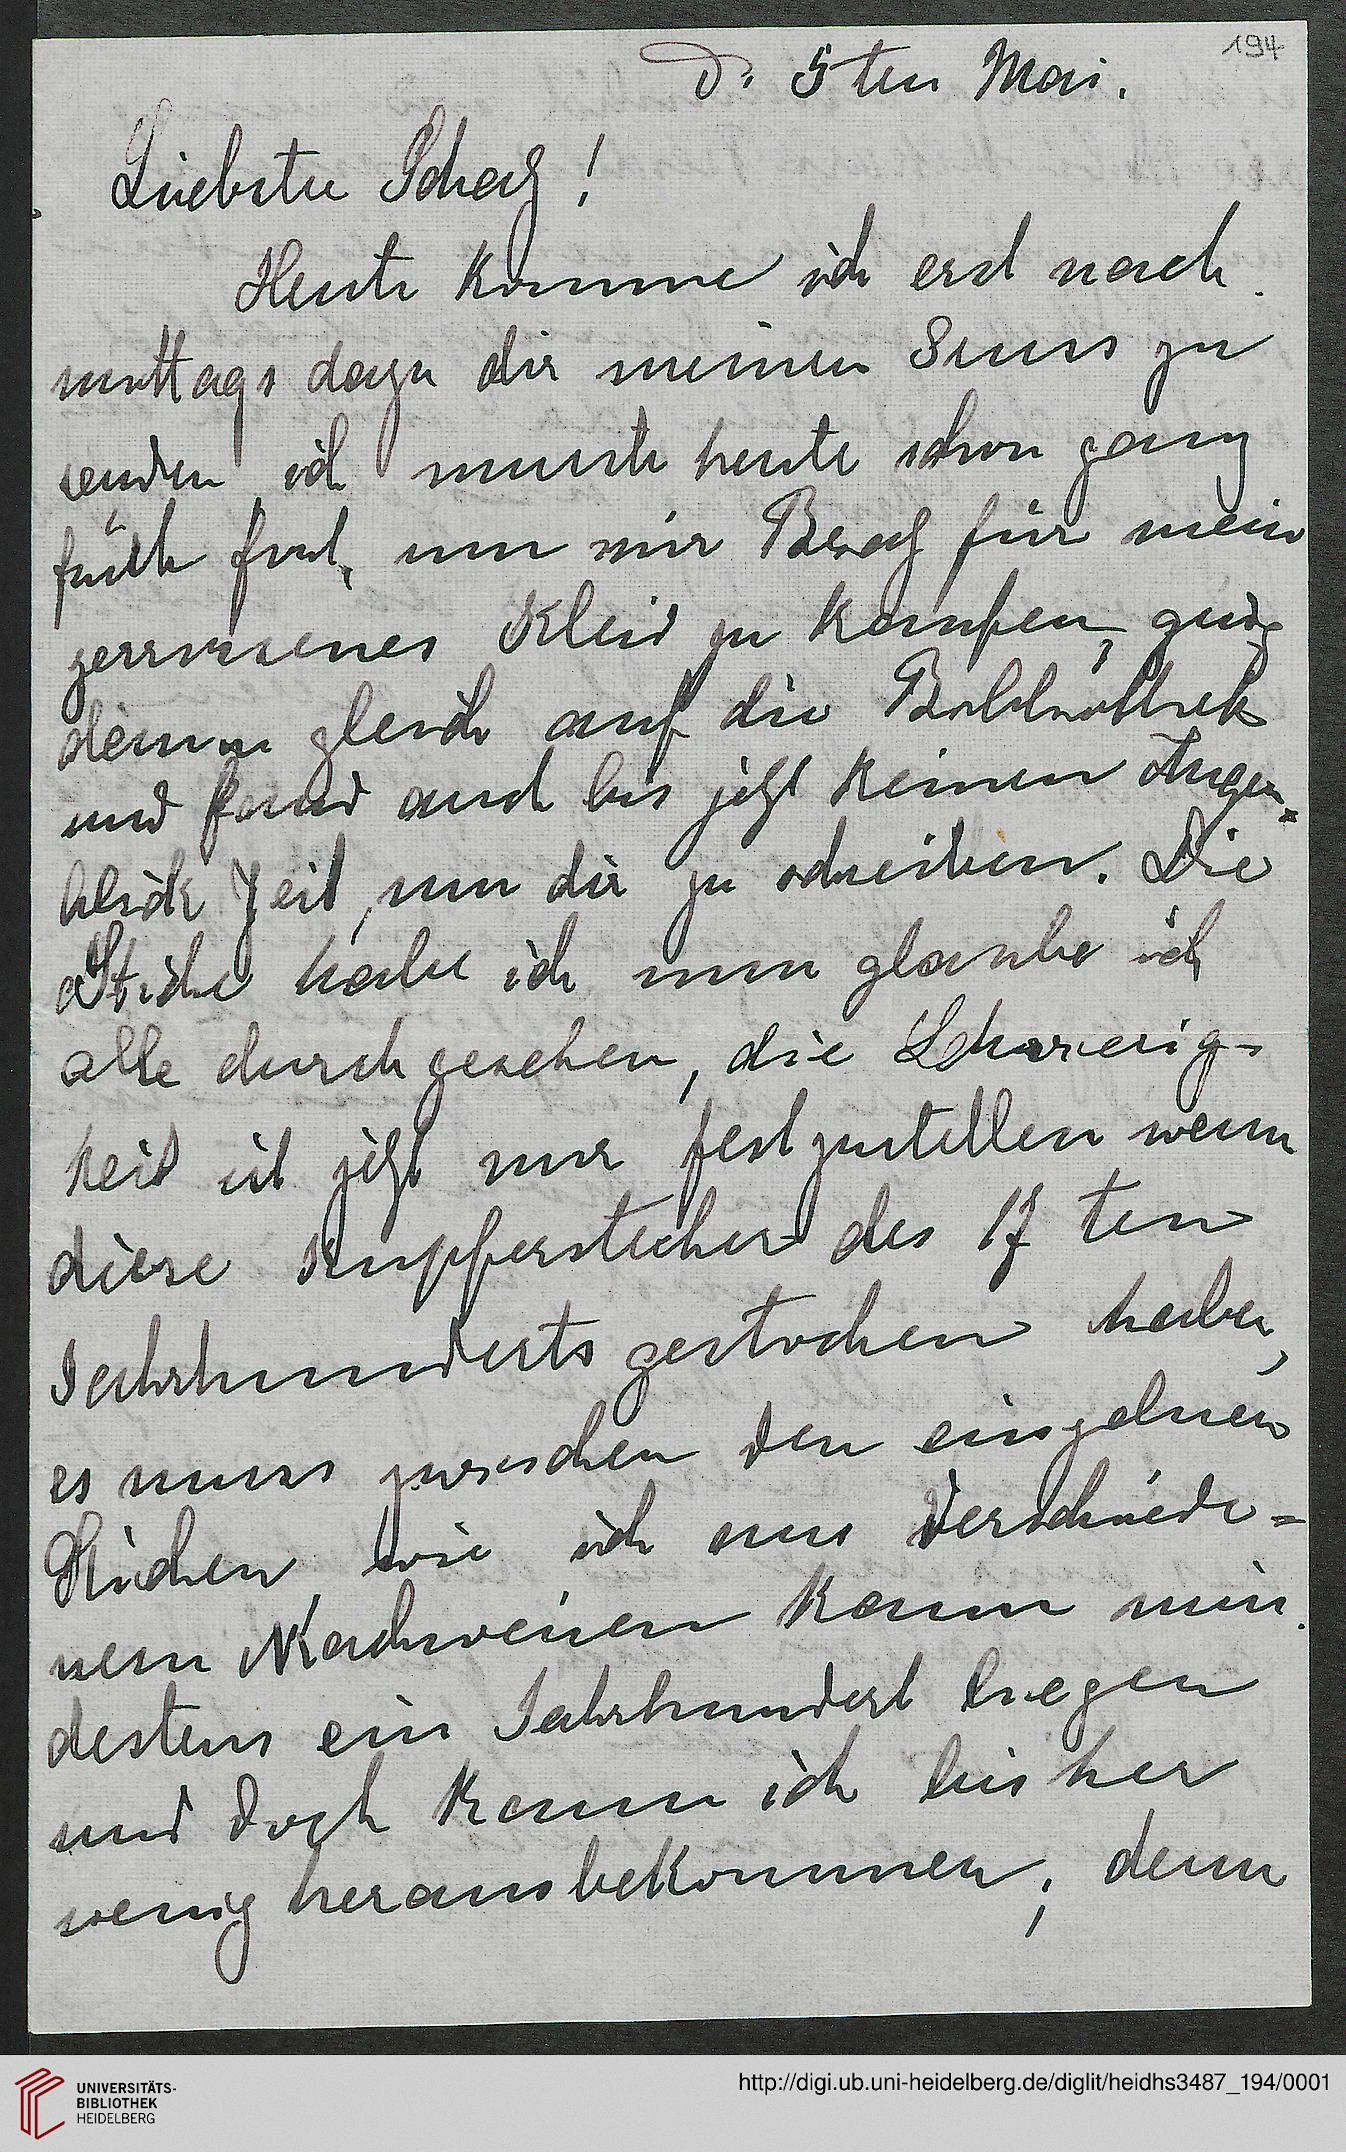 194
D. 5ten Mai.
Liebster Schatz!
Heute komme ich erst nach
mittags dazu dir meinen Gruss zu
senden ich musste heute schon ganz
früh fort, um mir Besatz für mein
zerrissenes Kleid zu kaufen, ging
denn gleich auf die Bibliothek
und fand auch bis jetzt keinen Augen=
blick Zeit, um dir zu schreiben. Die
Stiche habe ich nun glaube ich
alle durchgesehen, die Schwierig-
keit ist jetzt nur festzustellen wenn
diese Kupferstecher des 17ten
Jahrhunderts gestochen haben,
es muss zwischen den einzelnen
Stichen, wie ich aus verschiede=
nem Nachweisen kann min
destens ein Jahrhundert liegen
und doch kann ich bisher
wenig herausbekommen, denn
UNIVERSITÄTS-
BIBLIOTHEK
HEIDELBERG
http://digi.ub.uni-heidelberg.de/diglit/heidhs3487_194/0001